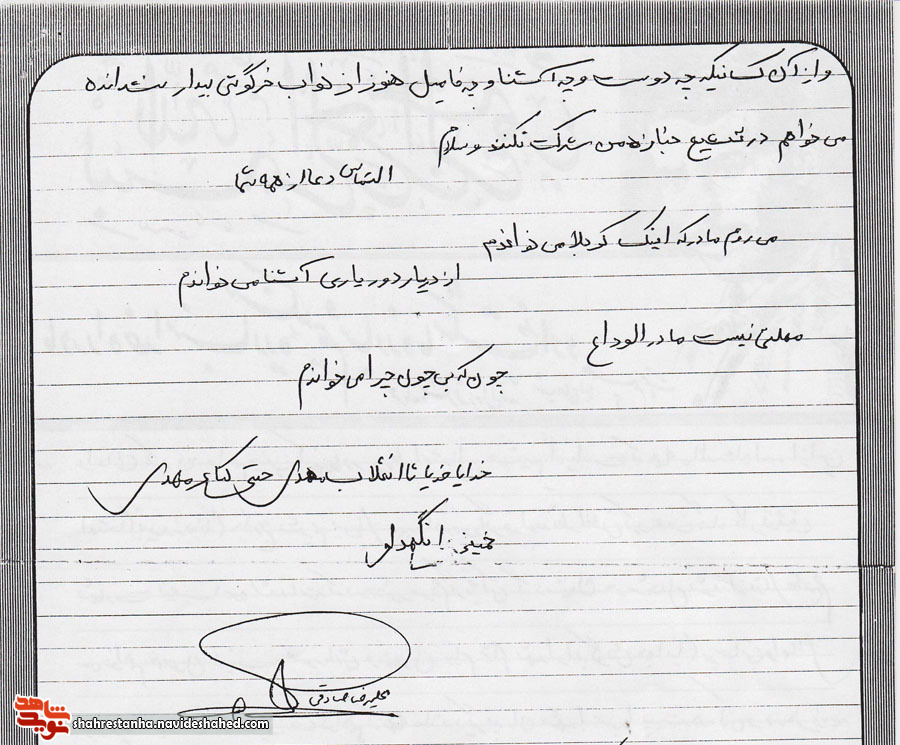 و از آن کسانیکه چه دوست و چه آشنا و چه فامیل هنوز از خواب خرگوشی بیدار نشدانده
می خواهم در تشییع جنازه من شرکت نکنند وسلام
التماس دعا از همه شما
می روم مادر که اینک کربلا می خواندم
از دیار دور یاری آشنا می خواندم
مهلتی نیست مادر الوداع
چون که بی چون چرا می خواندم
خدایا خدایا تا انقلاب مهدی حتی کنار مهدی
خمینی را نگهدار
علیرضا صادقی
شاهد
نوید
shahrestanha.navideshahed.com